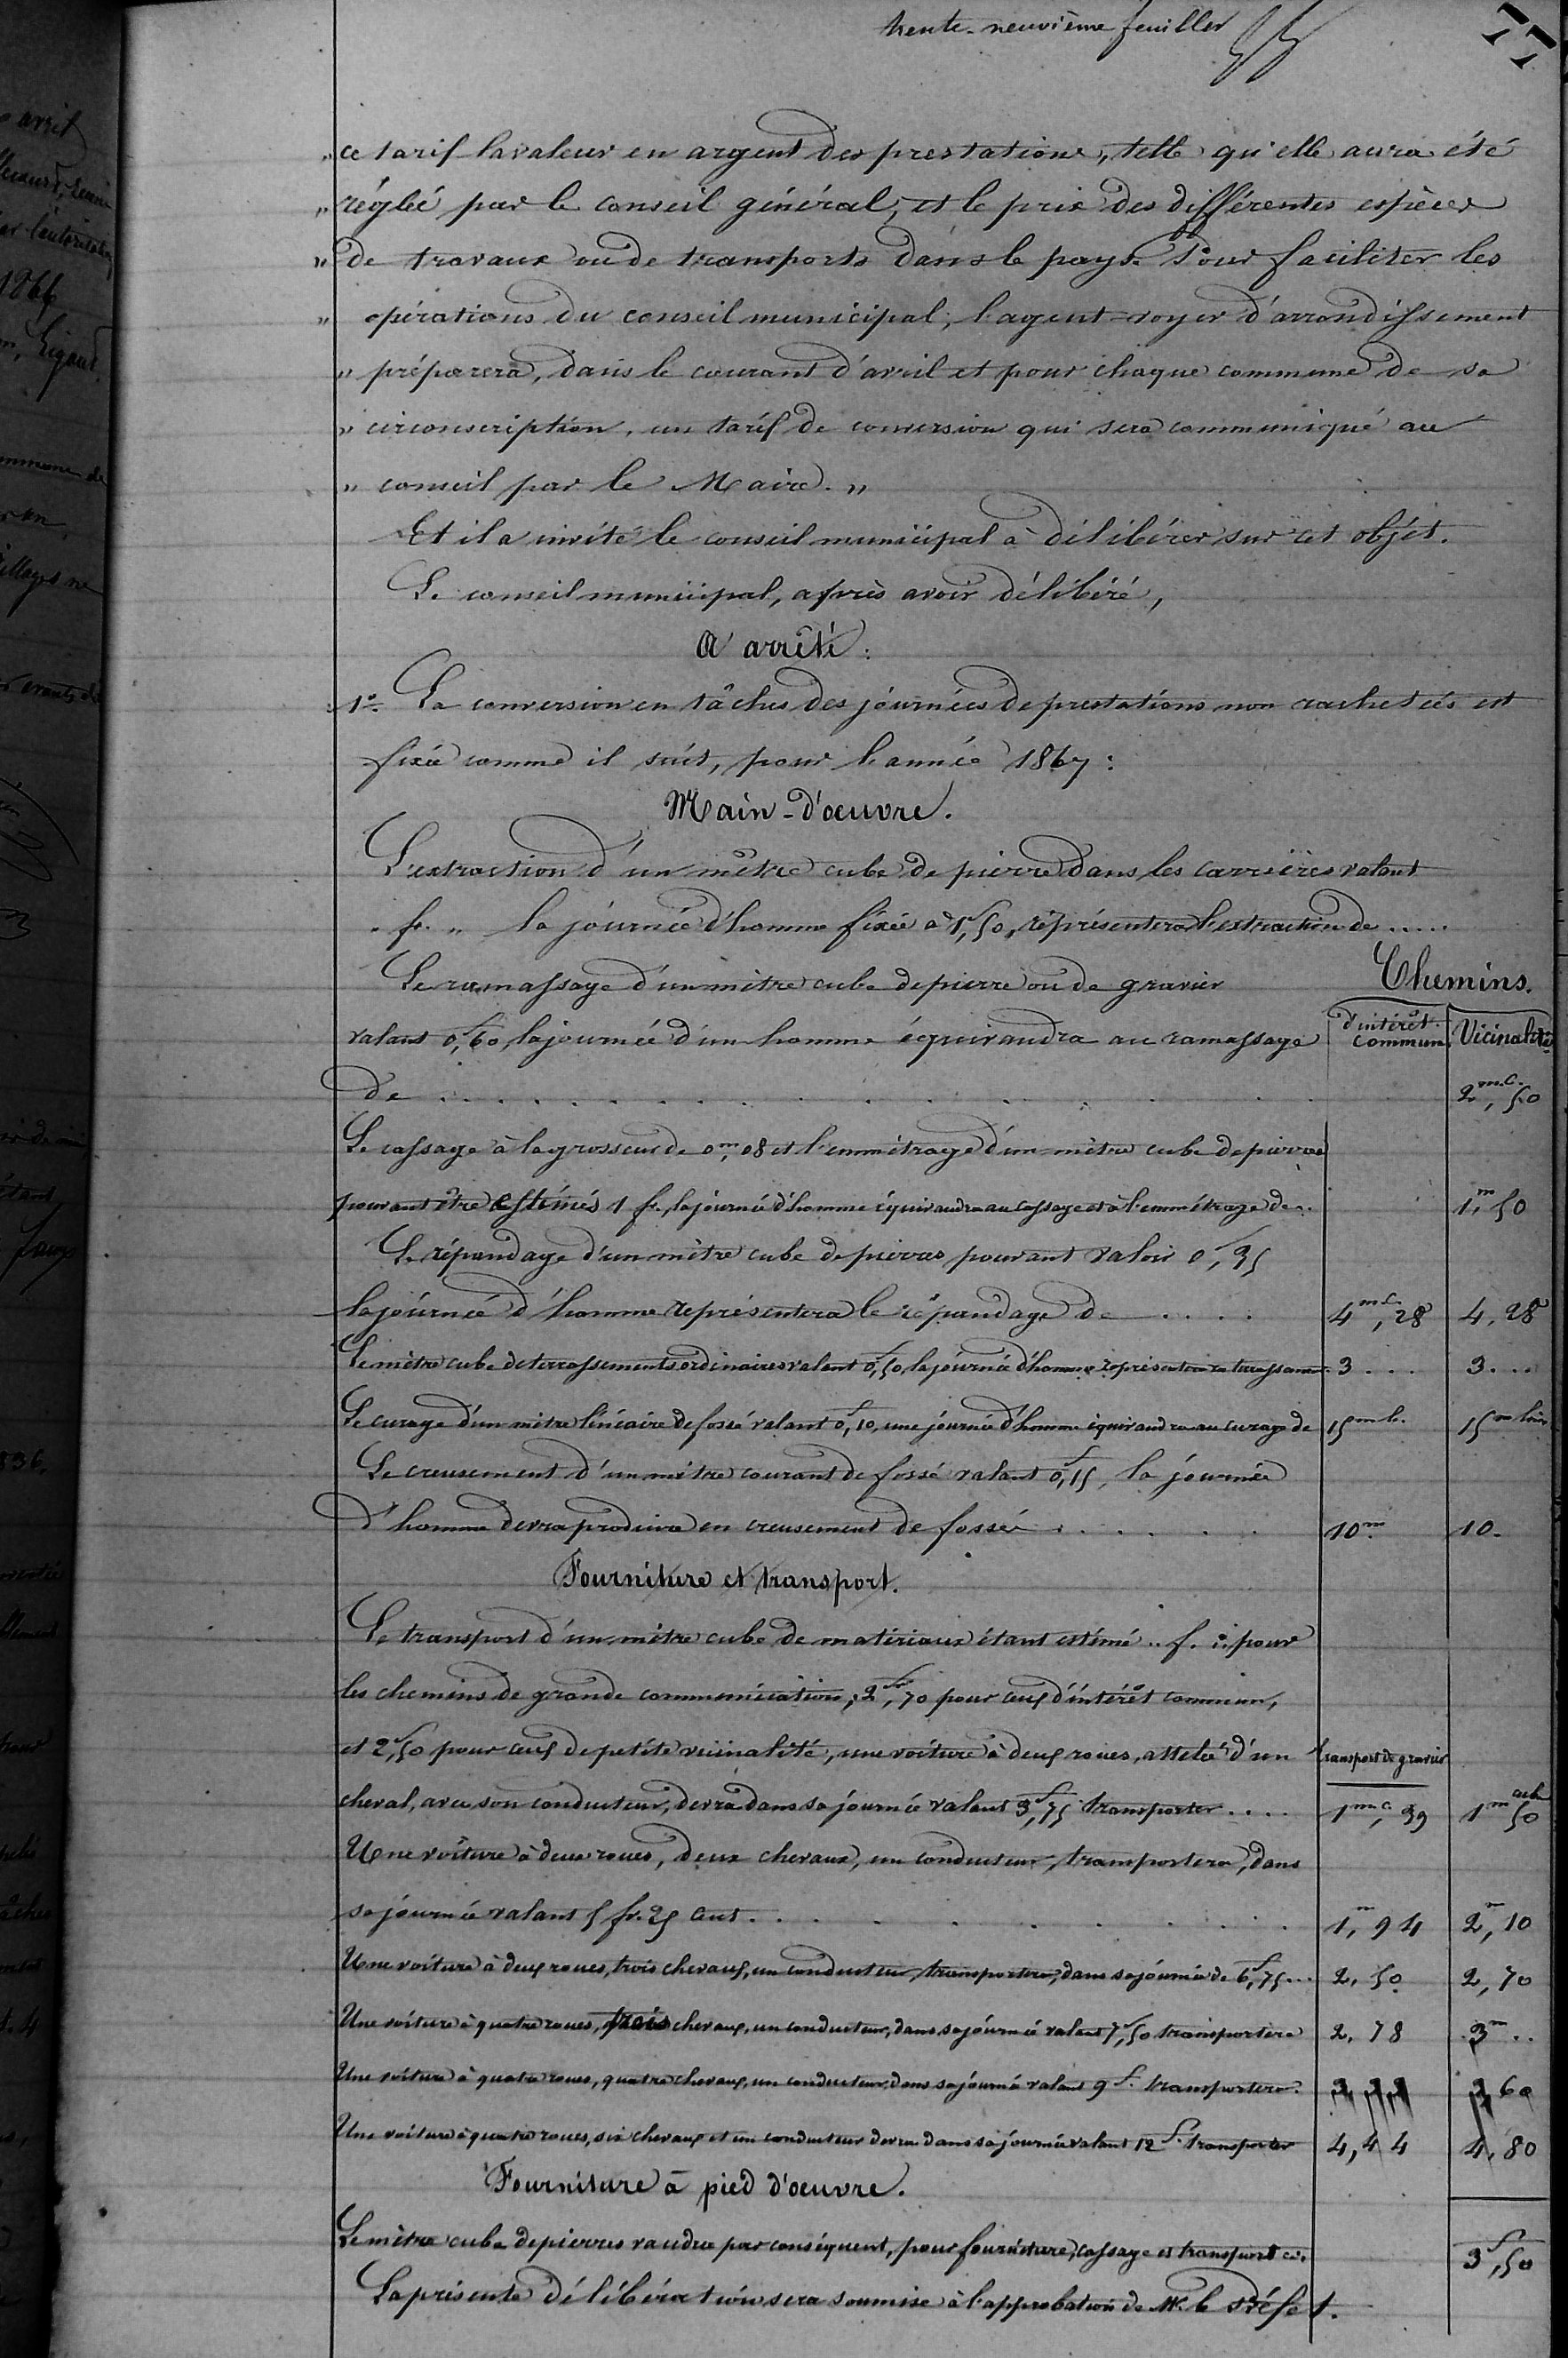 trente-neuvième feuillet
" ce tarif la valeur en argent des prestations, telle qu'elle aura été
" réglée par le conseil général, et le prix des différentes espèces
" de travaux ou de transports dans le pays. Pour faciliter les
" opérations du conseil municipal, l'agent-voyer d'arrondissement
" préparera, dans le courant d'avril et pour chaque commune de sa
" circonscription, un tarif de conversion qui sera communiqué au
" conseil par le Maire. "
Et il a invité le conseil municipal à délibérer sur cet objet.
Le conseil municipal, après avoir délibéré,
A arrêté :
1° La conversion en tâches des journées de prestations non rachetées est
fixée comme il suit, pour l'année 1867 :
Main-d'œuvre.
L'extraction d'un mètre cube de pierre dans les carrières valant
" fr. " la journée d'homme fixée à 1f,50, représentera l'extraction de .....
Le ramassage d'un mètre cube de pierre ou de gravier
Chemins.
valant 0f,60, la journée d'un homme équivaudra au ramassage
d'intérêt commun. Vicinalité
de . . . . . . . . . . 2m.c.,50
Le cassage à la grosseur de 0m,08 et l'emmétrage d'un mètre cube de pierres
pouvant être estimés 1 fr., la journée d'homme équivaudra au cassage et à l'emmétrage de .. 1m,50
Le répandage d'un mètre cube de pierres pouvant valoir 0f,35
la journée d'homme représentera le répandage de . . . . 4m.c.,28 4,28
Le mètre cube de terrassements ordinaires valant 0f,50, la journée d'homme représentera en terrassement. 3 . . . 3 . . .
Le curage d'un mètre linéaire de fossé valant 0f,10, une journée d'homme équivaudra au curage de 15m l. 15m lin
Le creusement d'un mètre courant de fossé valant 0f,15, la journée
d'homme devra produire en creusement de fossé . . . . . . 10m 10.
Fourniture et transport.
Le transport d'un mètre cube de matériaux étant estimé " f. " pour
les chemins de grande communication, 2fr,70 pour ceux d'intérêt commun,
et 2f,50 pour ceux de petite vicinalité, une voiture à deux roues, attelée d'un transport de gravier
cheval, avec son conducteur, devra dans sa journée valant 3f,75 transporter . . . . 1m c,39 1m cube 50
Une voiture à deux roues, deux chevaux, un conducteur, transportera, dans
sa journée valant 5 fr. 25 cent. . . . . . . . 1m,94 2m,10
Une voiture à deux roues, trois chevaux, un conducteur, transportera, dans sa journée de 6f,75 ... 2,50 2,70
Une voiture à quatre roues, trois chevaux, un conducteur, dans sa journée valant 7f,50 transportera 2,78 3m ..
Une voiture à quatre roues, quatre chevaux, un conducteur, dans sa journée valant 9f. transportera. 3,33 3,60
Une voiture à quatre roues, six chevaux et un conducteur devra dans sa journée valant 12f. transporter 4,44 4,80
Fourniture à pied d'œuvre.
Le mètre cube de pierres vaudra par conséquent, pour fourniture, cassage et transport ci. 3f,50
La présente délibération sera soumise à l'approbation de Mr. le Préfet.